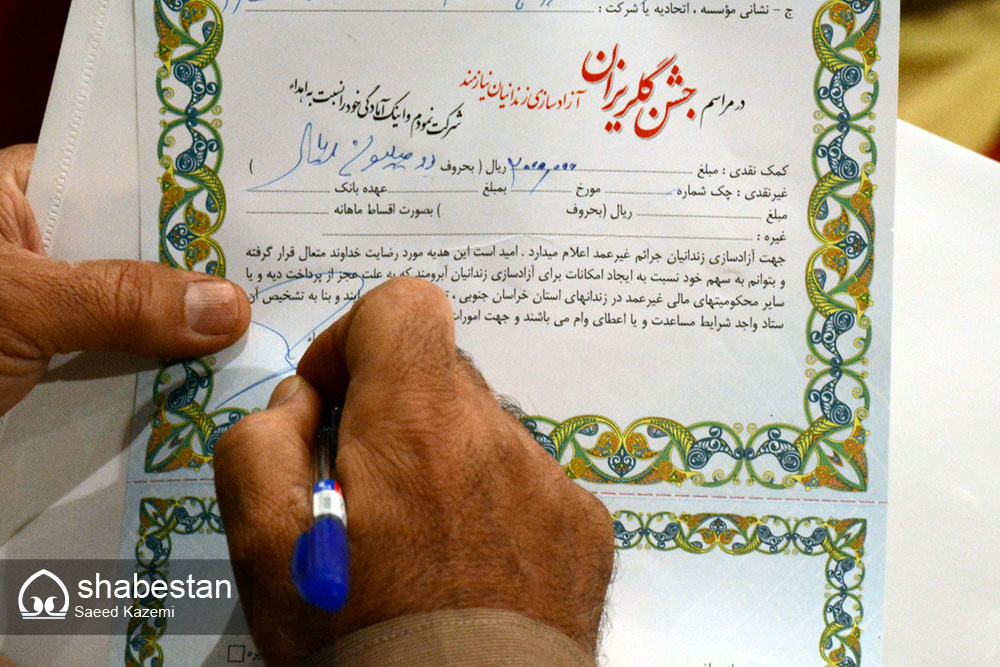 ج - نشانی مؤسسه ، اتحادیه یا شرکت :
در مراسم جشن گلریزان آزادسازی زندانیان نیازمند
شرکت نمودم و اینک آمادگی خود را نسبت به اهداء
کمک نقدی : مبلغ ۲۰۰۰,۰۰۰ ریال ( بحروف دو میلیون ریال )
غیرنقدی : چک شماره مورخ بمبلغ عهده بانک
مبلغ ریال (بحروف ) بصورت اقساط ماهانه
غیره :
جهت آزادسازی زندانیان جرائم غیرعمد اعلام میدارد . امید است این هدیه مورد رضایت خداوند متعال قرار گرفته
و بتوانم به سهم خود نسبت به ایجاد امکانات برای آزادسازی زندانیان آبرومند که به علت عجز از پرداخت دیه و یا
سایر محکومیتهای مالی غیرعمد در زندانهای استان خراسان جنوبی ، ایند و بنا به تشخیص آن
ستاد واجد شرایط مساعدت و یا اعطای وام می باشند و جهت امورات
shabestan
Saeed Kazemi